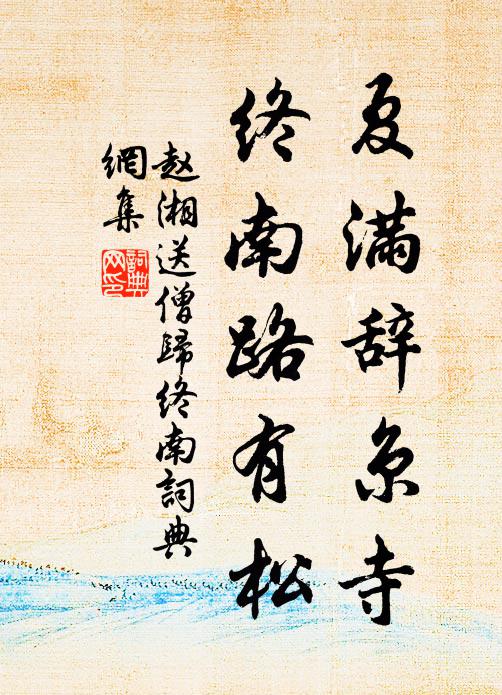 夏满辞京寺
终南路有松
赵湘送僧歸终南詞典
網集
詞典網印